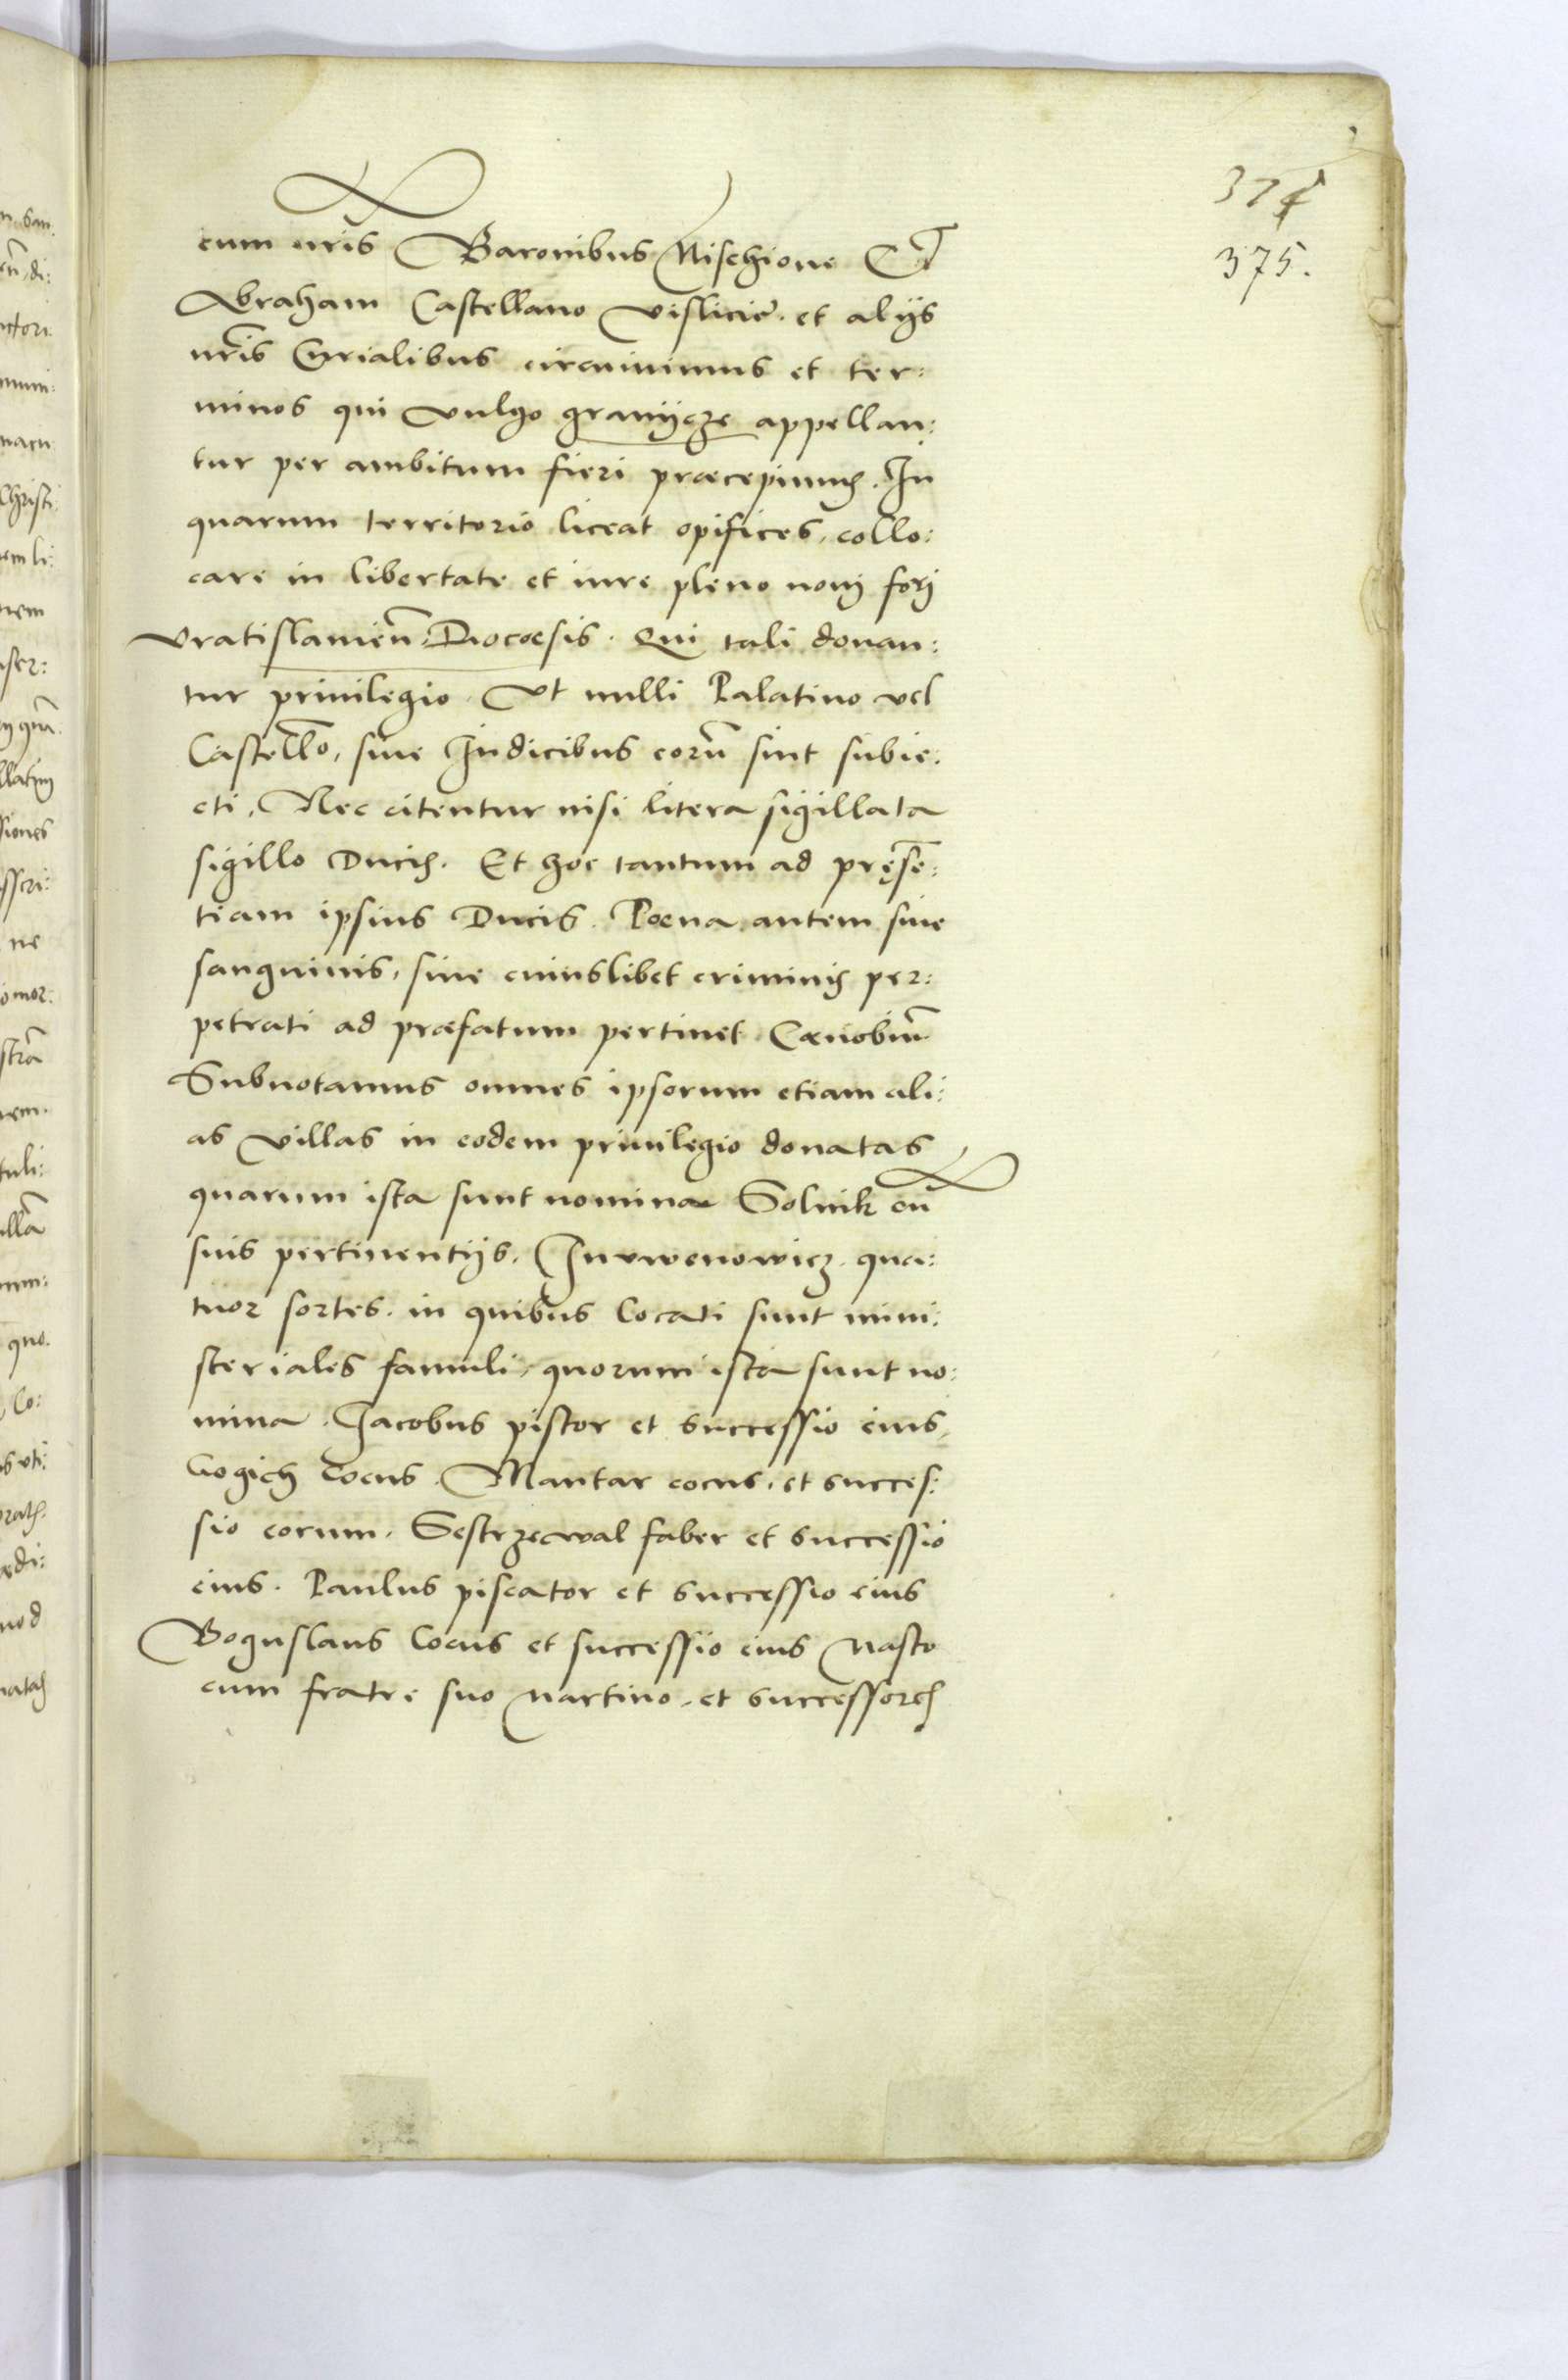 374
375.
cum nr̃is Baronibus Nischione Et
Abraham Castellano Vislicie. et alijs
nr̃is Curialibus circuiuimus et ter:
minos qui vulgo granijcze appellan:
tur per ambitum fieri præcepimus. In
quarum territorio liceat opifices, collo:
care in libertate et iure pleno noui forj
Vratislauieñ: Diocoesis. Qui tali donan:
tur priuilegio. Vt nulli Palatino vel
Castell̃o, siue Iudicibus eorũ sint subie:
cti, Nec citentur nisi litera sigillata
sigillo Ducis. Et hoc tantum ad pręsẽ:
tiam ipsius Ducis. Poena autem siue
sanguinis, siue cuiuslibet criminis per:
petrati ad præfatum pertinet Cænobiũ
Subnotamus omnes ipsorum etiam ali:
as villas in eodem priuilegio donatas
quarum ista sunt nomina Solnik cũ
suis pertinentijs. Inrwenowicz. qua:
tuor sortes. in quibus locati sunt mini:
steriales famuli, quorum ista sunt no:
mina. Jacobus pistor et successio eius,
Gogich cocus. Mantar cocus. et succes:
sio eorum. Sestrzewal faber et successio
eius. Paulus piscator et successio eius
Boguslaus cocus et successio eius Nasto
cum fratre suo Martino. et successores